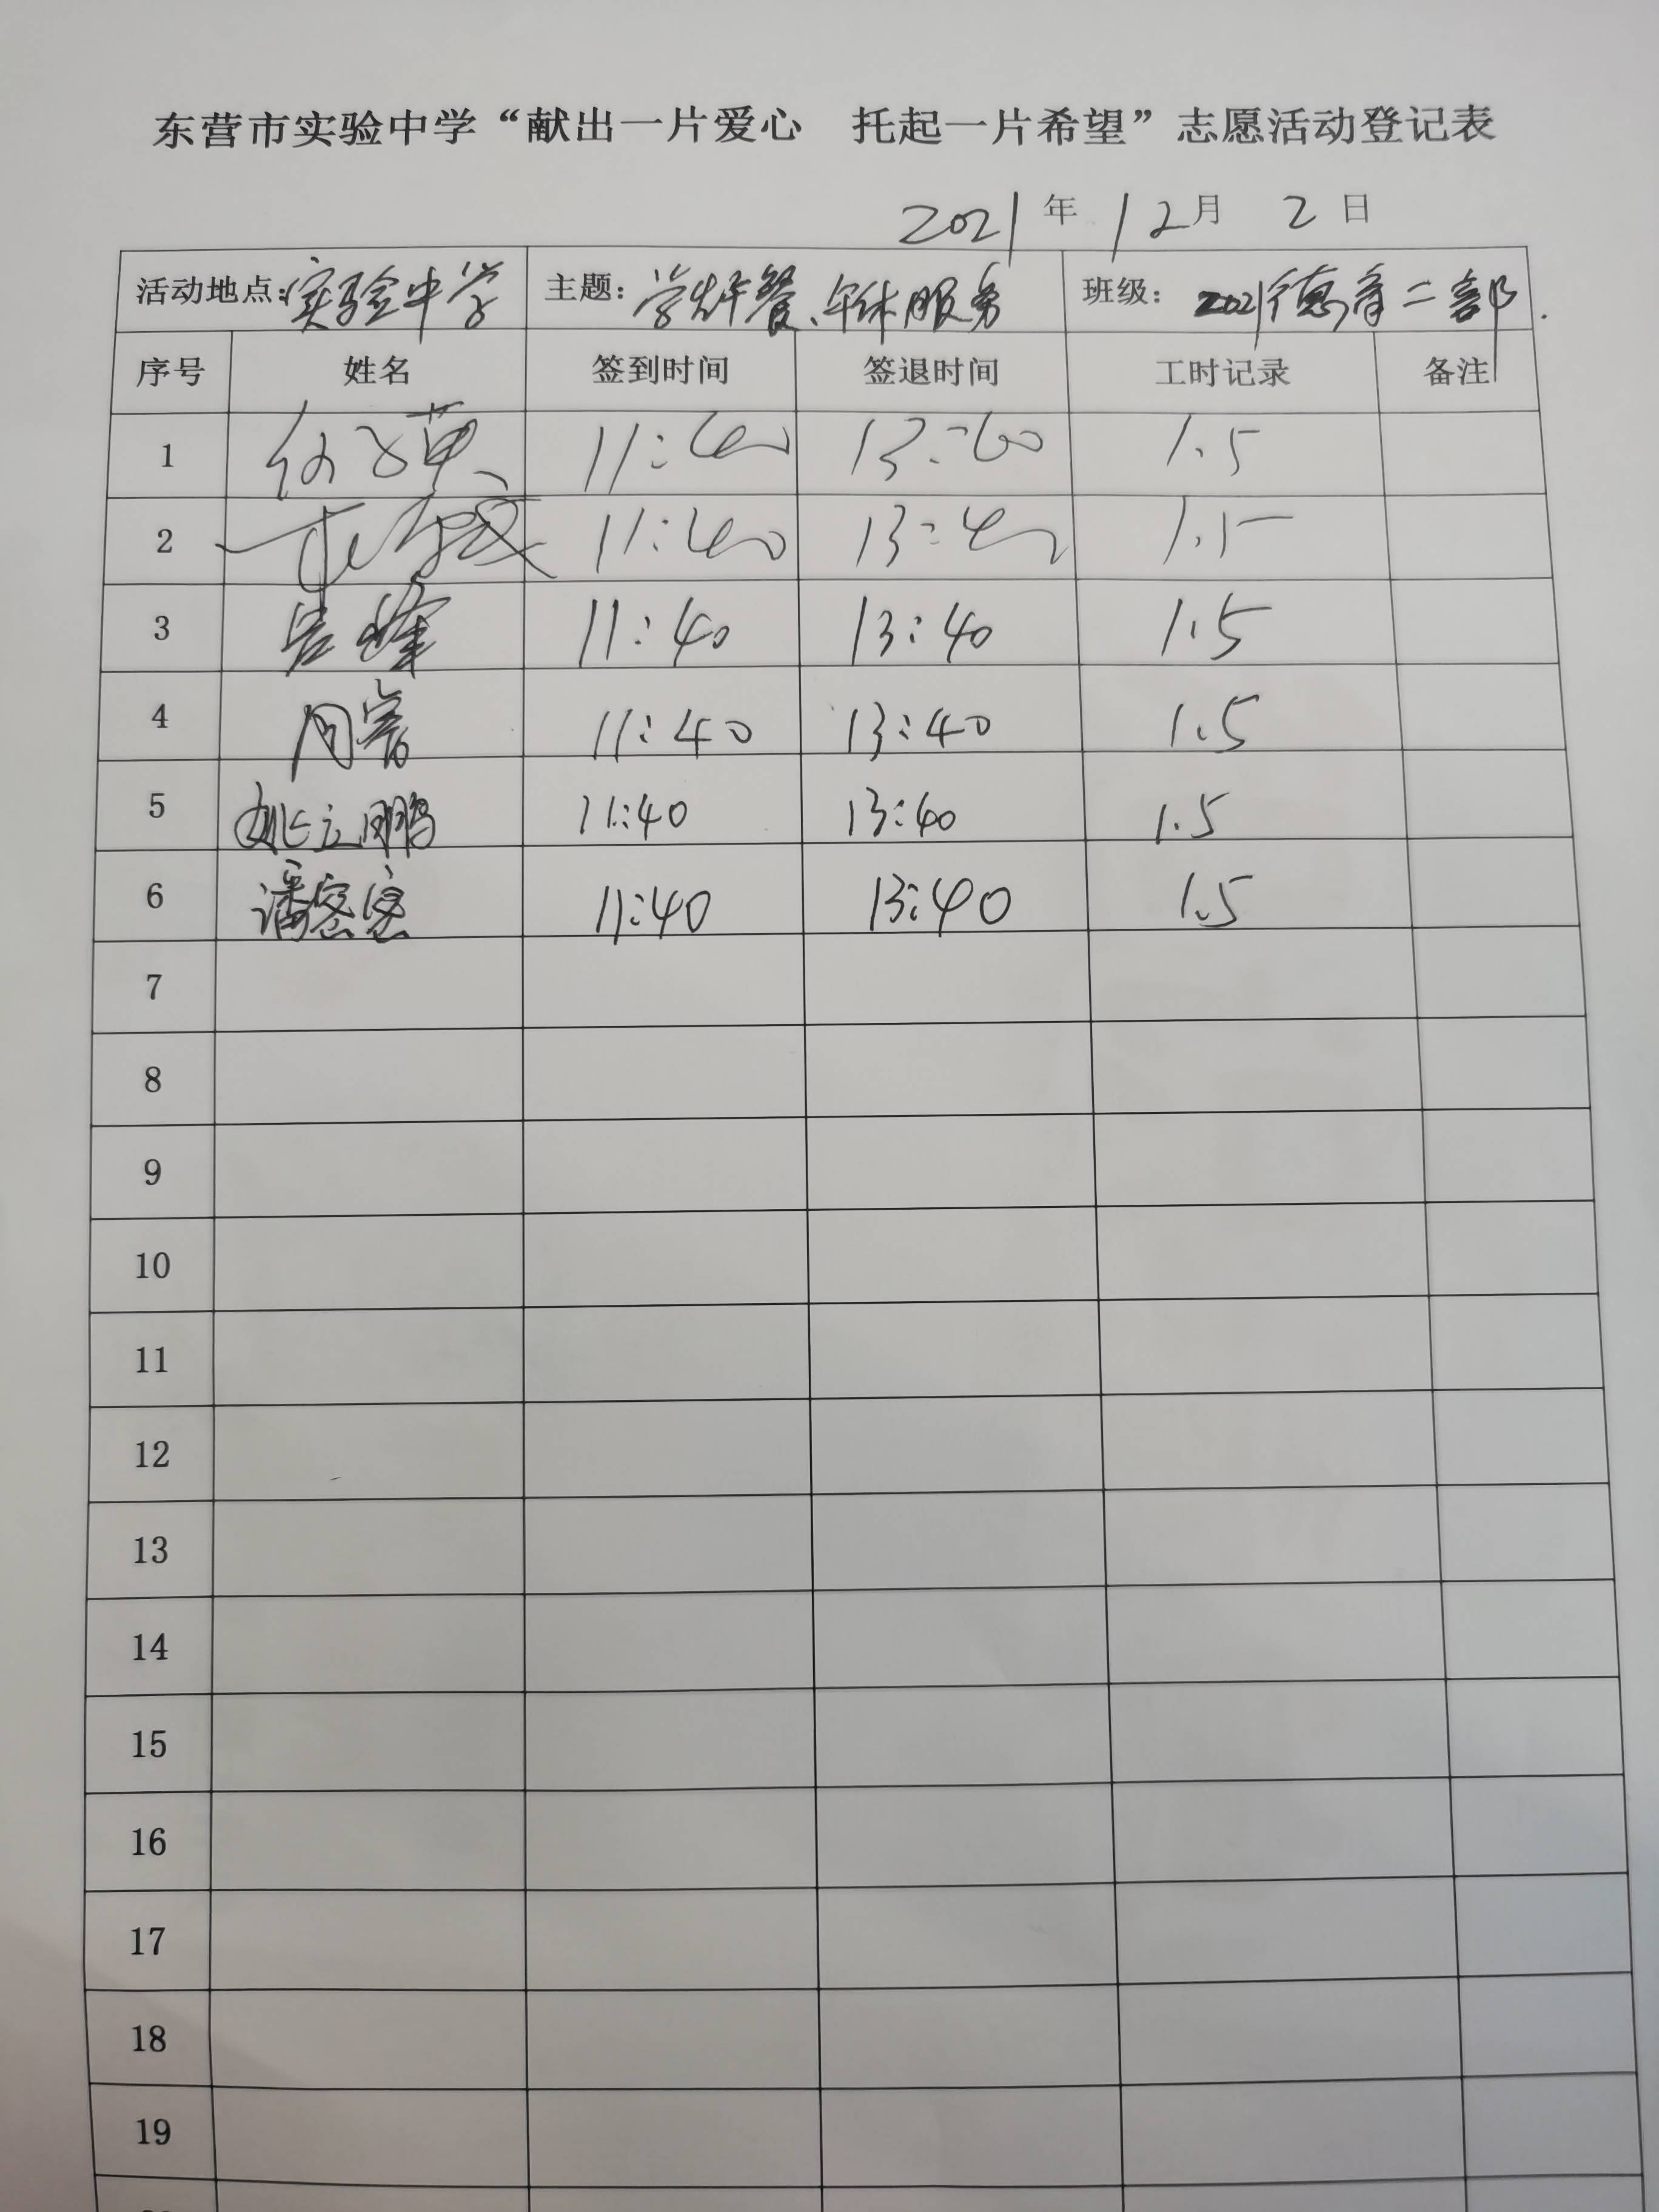 东营市实验中学“献出一片爱心 托起一片希望”志愿活动登记表
2021年12月2日
活动地点:实验中学 主题:学生午餐、午休服务 班级: 2021德育二部.
序号 姓名 签到时间 签退时间 工时记录 备注
1 11:40 13:40 1.5
2 11:40 13:40 1.5
3 峰 11:40 13:40 1.5
4 11:40 13:40 1.5
5 姚立鹏 11:40 13:40 1.5
6 潘密密 11:40 13:40 1.5
7
8
9
10
11
12
13
14
15
16
17
18
19